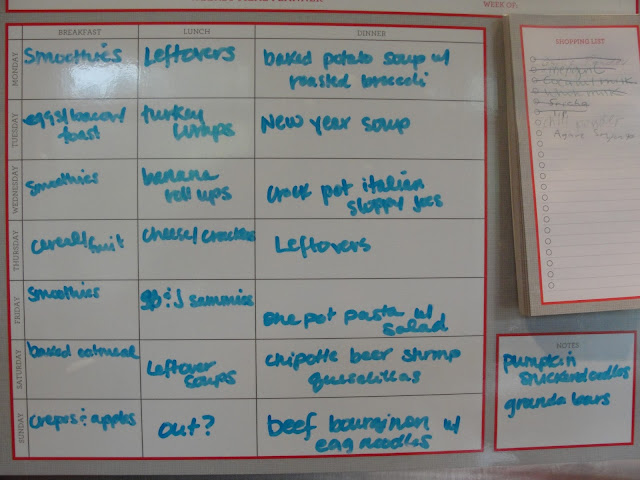 WEEK OF:
BREAKFAST LUNCH DINNER
MONDAY
Smoothies
Leftovers
baked potato soup w/
roasted broccoli
TUESDAY
eggs/bacon/
toast
turkey
wraps
New year soup
WEDNESDAY
Smoothies
banana
roll ups
crock pot italian
sloppy joes
THURSDAY
cereal/fruit
cheese/crackers
Leftovers
FRIDAY
Smoothies
PB & J sammies
one pot pasta w/
salad
SATURDAY
baked oatmeal
Leftover
soups
chipotle beer shrimp
quesadillas
SUNDAY
crepes & apples
out?
beef bourginon w/
egg noodles
SHOPPING LIST
Agave
NOTES
pumpkin
snickerdoodles
granola bars